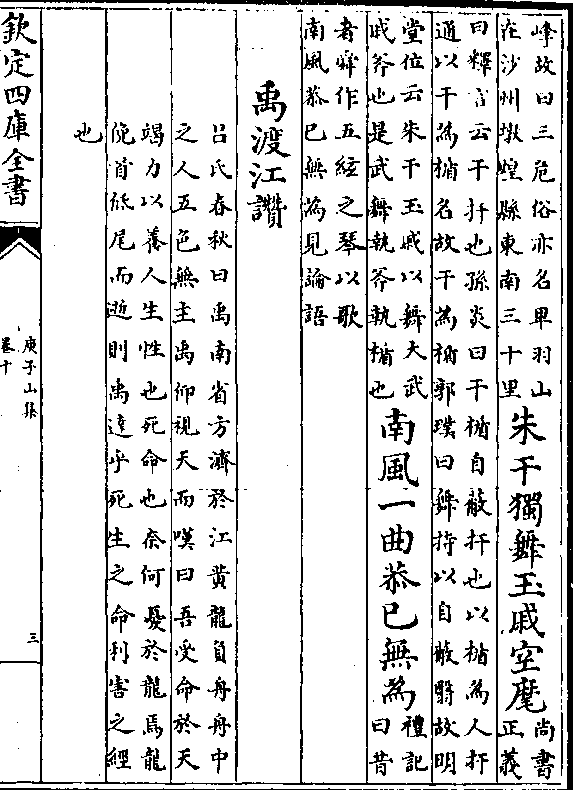 峰故曰三危俗亦名卑羽山
在沙州墩煌縣東南三十里
朱干獨舞玉戚空麾
尚書
正義
曰釋言云干扞也孫炎曰干楯自蔽扞也以楯為人扞
通以干為楯名故干為楯郭璞曰舞持以自蔽翳故明
堂位云朱干玉戚以舞大武
戚斧也是武舞執斧執楯也
南風一曲恭已無為
禮記
曰昔
者舜作五絃之琴以歌
南風恭已無為見論語
禹渡江讚
呂氏春秋曰禹南省方濟於江黃龍負舟舟中
之人五色無主禹仰視天而嘆曰吾受命於天
竭力以養人生性也死命也奈何憂於龍焉龍
俛首低尾而逝則禹達乎死生之命利害之經
也
欽定四庫全書
庾子山集
卷十
三